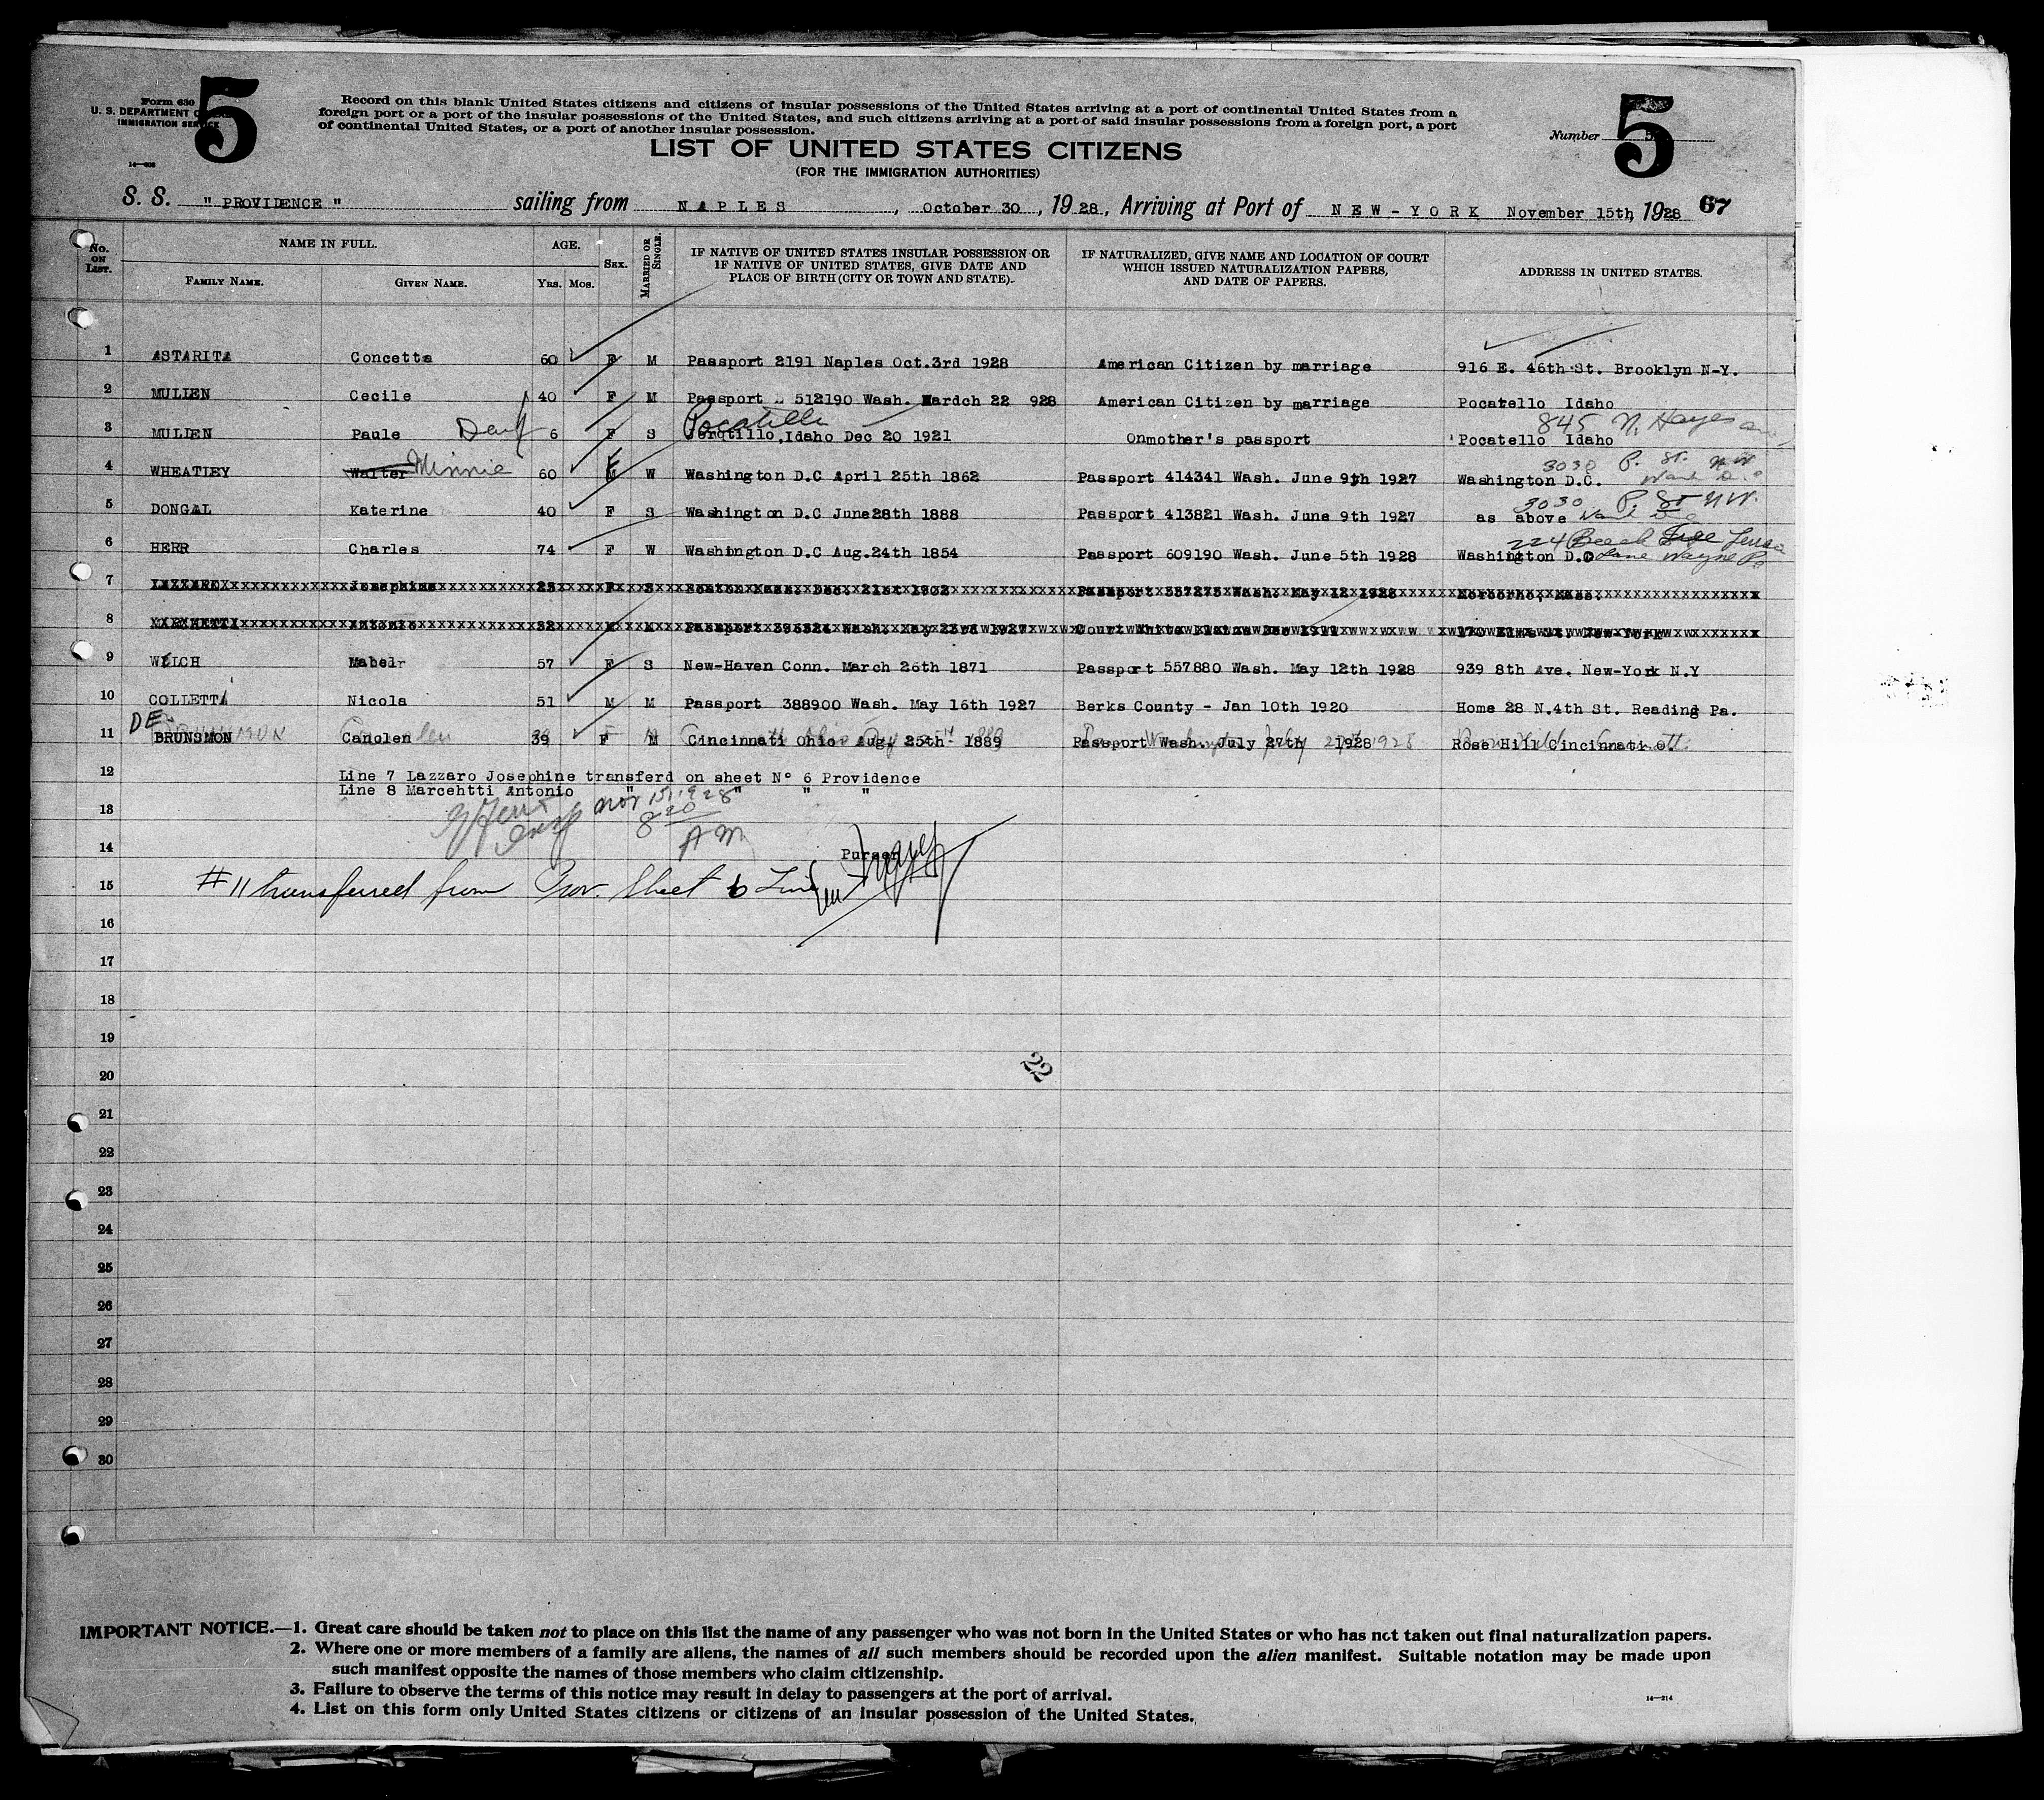 5
Form 630
U. S. DEPARTMENT OF
IMMIGRATION SERVICE
14—608
Record on this blank United States citizens and citizens of insular possessions of the United States arriving at a port of continental United States from a
foreign port or a port of the insular possessions of the United States, and such citizens arriving at a port of said insular possessions from a foreign port, a port
of continental United States, or a port of another insular possession.
Number 5
5
LIST OF UNITED STATES CITIZENS
(FOR THE IMMIGRATION AUTHORITIES)
S. S. " PROVIDENCE " sailing from NAPLES, October 30, 1928, Arriving at Port of NEW-YORK November 15th, 1928 67
No. ON LIST.
NAME IN FULL.
FAMILY NAME.
GIVEN NAME.
AGE.
YRS. MOS.
SEX.
MARRIED OR SINGLE.
IF NATIVE OF UNITED STATES INSULAR POSSESSION OR
IF NATIVE OF UNITED STATES, GIVE DATE AND
PLACE OF BIRTH (CITY OR TOWN AND STATE).
IF NATURALIZED, GIVE NAME AND LOCATION OF COURT
WHICH ISSUED NATURALIZATION PAPERS,
AND DATE OF PAPERS.
ADDRESS IN UNITED STATES.
1 ASTARITA Concetta 60 F M Passport 2191 Naples Oct.3rd 1928 American Citizen by marriage 916 E. 46th St. Brooklyn N-Y.
2 MULLEN Cecile 40 F M Passport 512190 Wash. Mardch 22 928 American Citizen by marriage Pocatello Idaho
Pocatello 845 N. Hayes
3 MULLEN Paule 6 F S Idaho Dec 20 1921 Onmother's passport Pocatello Idaho
3030 P. St. N W
4 WHEATLEY Walter Minnie 60 F W Washington D.C April 25th 1862 Passport 414341 Wash. June 9th 1927 Washington D.C. Wash D.C
3030 P. St N W.
5 DONGAL Katerine 40 F S Washington D.C June28th 1888 Passport 413821 Wash. June 9th 1927 as above Wash D C
224 Beech Tree
6 HERR Charles 74 F W Washington D.C Aug.24th 1854 Passport 609190 Wash. June 5th 1928 Washington D.C Lane Wayne Pa
7 LAZZARO Josephine 25 F S Boston Mass. Dec. 21st 1902 Passport 557275 Wash. May 12 1928 Mass.
8 MARCHETTI Antonio 52 M M Passport Wash. May 23rd 1927 Court White Plains 1911 New-York
9 WELCH Mabelr 57 F S New-Haven Conn. March 26th 1871 Passport 557880 Wash. May 12th 1928 939 8th Ave. New-York N.Y
10 COLLETTA Nicola 51 M M Passport 388900 Wash. May 16th 1927 Berks County - Jan 10th 1920 Home 28 N.4th St. Reading Pa.
DE
11 BRUNSMON Canolen 39 F M Cincinnati Ohio Aug, 25th 1889 Passport Wash. July 27th 1928 Rose Hill Cincinnati O.
12 Line 7 Lazzaro Josephine transferd on sheet N° 6 Providence
Line 8 Marcehtti Antonio " " "
13 Nov 15 1928
8 20
A M
14 Purser
15 #11 transferred from Prov. Sheet 6 Line
16
17
18
19
22
20
21
22
23
24
25
26
27
28
29
30
IMPORTANT NOTICE.—1. Great care should be taken not to place on this list the name of any passenger who was not born in the United States or who has not taken out final naturalization papers.
2. Where one or more members of a family are aliens, the names of all such members should be recorded upon the alien manifest. Suitable notation may be made upon
such manifest opposite the names of those members who claim citizenship.
3. Failure to observe the terms of this notice may result in delay to passengers at the port of arrival.
4. List on this form only United States citizens or citizens of an insular possession of the United States.
14—214